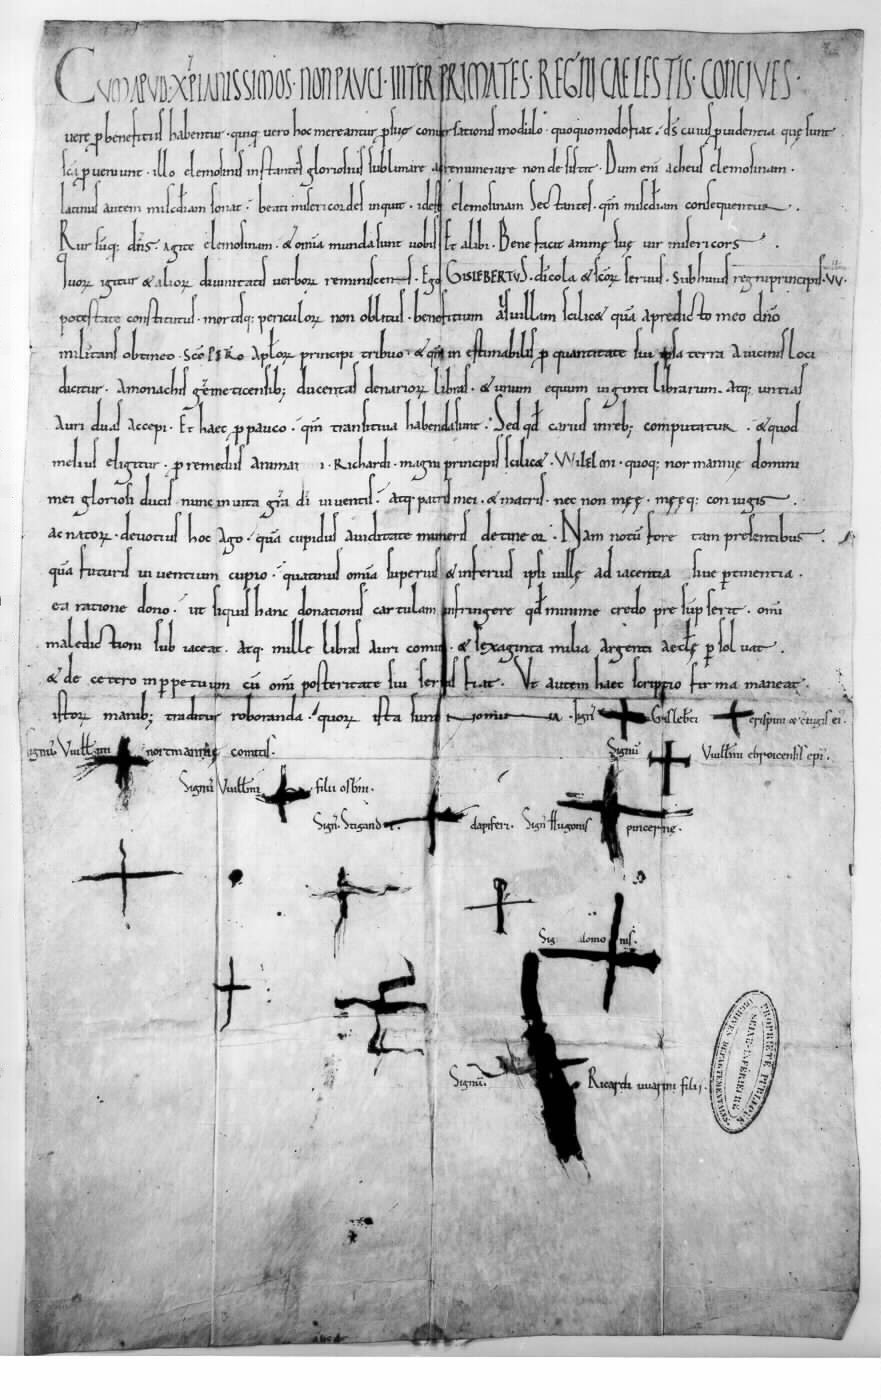 CUM APUD XPIANISSIMOS · NON PAUCI · INTER PRIMATES · REGNI CAELESTIS · CONCIVES ·
uere p beneficiis habentur · quiq uero hoc mereantur p suę conuersationis modulo · quoquomodo fiat · ds cuius puidentia quę sunt
sca pueniunt · illo elemosinis instantes gloriosius sublimare ac remunerare non desistit · Dum eni acheus elemosinam ·
latinus autem miscdiam sonat · beati misericordes inquit · idest elemosinam sectantes · qm miscdiam consequentur ·
Rursusq; dns · agite elemosinam · & omia munda sunt uobis Et alibi · Bene facit animę suę uir misericors ·
Quorz igitur & aliorz diuinitatis uerborz reminiscens · Ego GISLEBERTUS · di cola & scorz seruus · sub huius regni principis · W ·
potestate constitutus · mortisq; periculorz non oblitus · beneficium uillam scilic& qua a predicto meo dno
militans obtineo · sco PETRO aplorz principi tribuo · & qm inestimabilis p quantitate sui ipsa terra a uicinis loci
dicitur · A monachis gemeticensib; ducentas denariorz libras · & unum equum uiginti librarum · atq; untias
auri duas accepi · Et haec p pauco · qm transitiua habenda sunt · Sed qd carius in reb; computatur · & quod
melius eligitur · p remediis animarum · Richardi · magni principis scilic& · Willelmi · quoq; normannię domini
mei gloriosi ducis nunc in uita gra di uiuentis · atq; patris mei · & matris · nec non męę · męęq; coniugis ·
ac natorz · deuotius hoc ago · qua cupidus auiditate muneris detineor · Nam notu fore tam presentibus ·
qua futuris uiuentium cupio · quatinus omia superius & inferius ipsi uillę adiacentia siue ptinentia ·
ea ratione dono · ut siquis hanc donationis cartulam infringere qd minime credo presupserit · omi
maledictioni subiaceat · atq; mille libras auri comiti · & sexaginta milia argenti aeclę psoluat ·
& de cetero in ppetuum cu omi posteritate sui seruus fiat · Ut autem haec scriptio firma maneat ·
istorz manib; traditur roboranda · quorz ista sunt nomina · Signu Gisleberti crispini & ciugis ei ·
Signu Willelmi nortmannię comitis · Signu Willelmi ebroicensis epi ·
Signu Willelmi filii osberni ·
Sign · Stigandi dapiferi · Sign Hugonis pincernę ·
Signu · Ricardi filii ·
PROPRIÉTÉ PUBLIQUE
SEINE-INFÉRIEURE
ARCHIVES DÉPARTEMENTALES